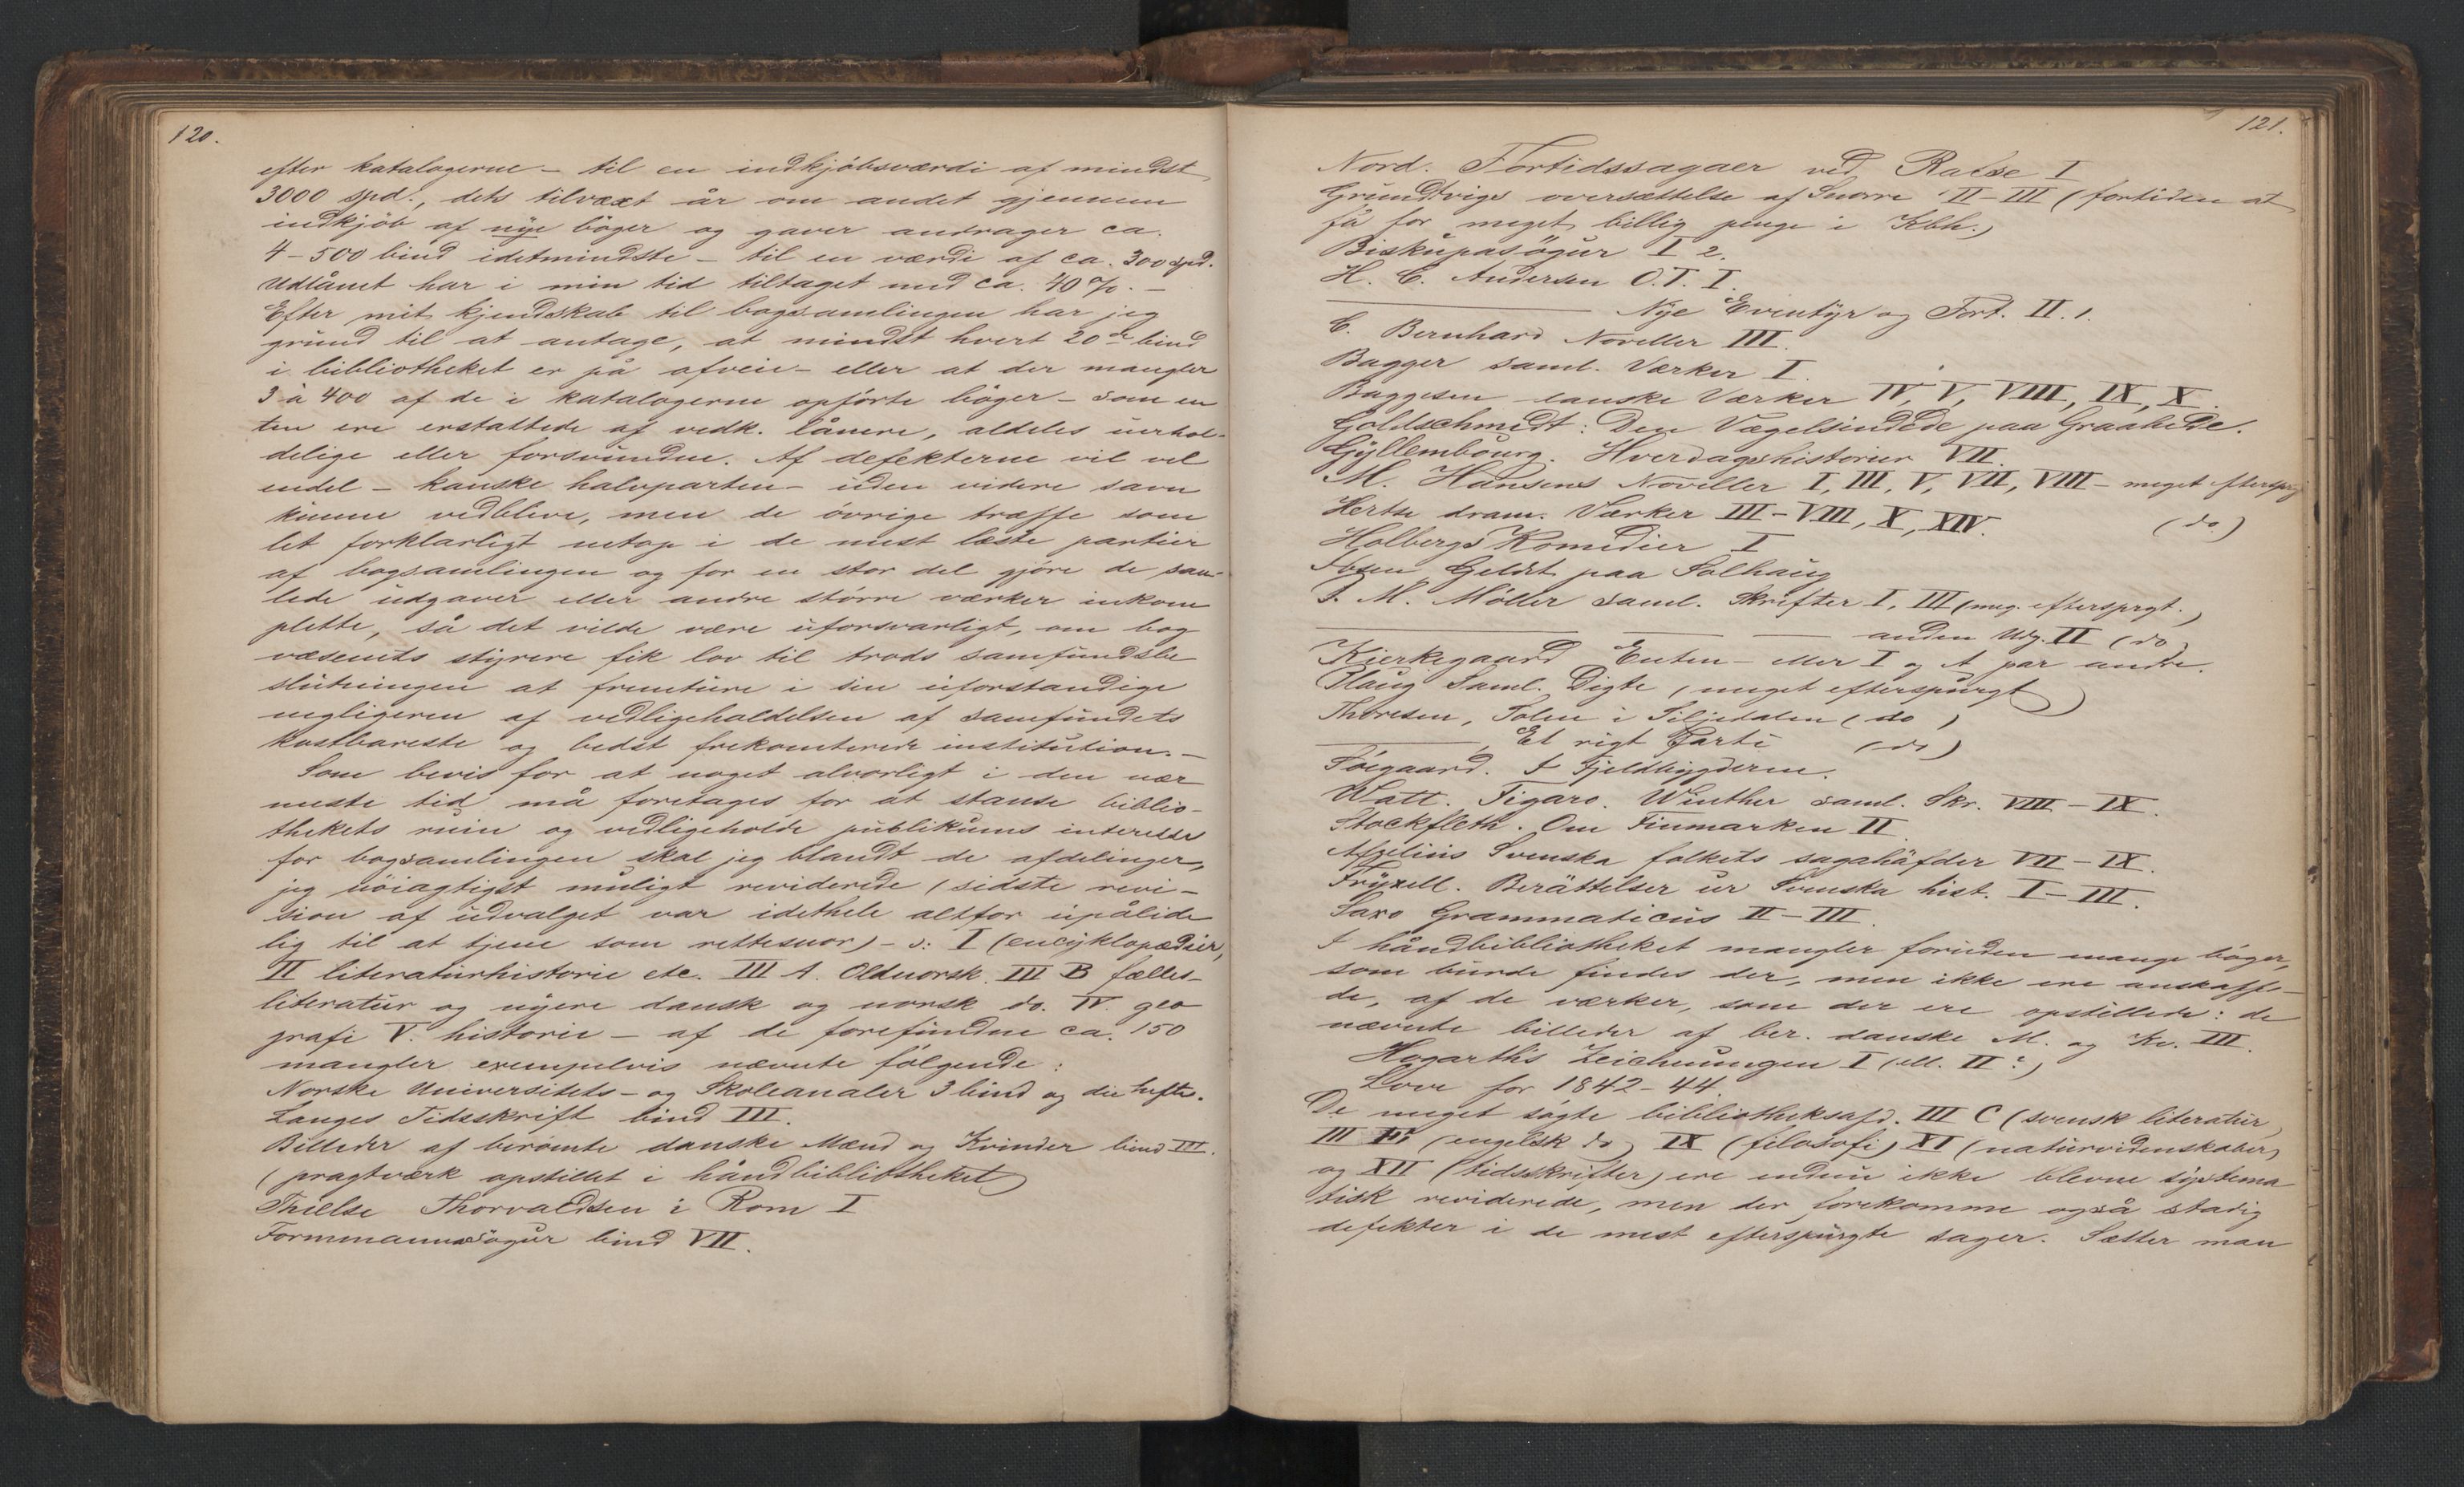 120.
efter katalogerne – til en indkjöbsværdi af mindst
3000 spd., dets tilvæxt år om andet gjennem
indkjöb af nye böger og gaver andrager ca.
4-500 bind idetmindste – til en værdi af ca. 300 spd.
Udlånet har i min tid tiltaget med ca. 40 %. –
Efter mit kjendskab til bogsamlingen har jeg
grund til at antage, at mindst hvert 20de bind
i bibliotheket er på afveie – eller at der mangler
3 à 400 af de i katalogerne opförte böger – som en
ten ere erstattede af vedk. lånere, aldeles uerhol-
delige eller forsvundne. Af defekterne vil vel
endel – kanske halvparten – uden videre savn
kunne vedblive, men de övrige træffe som
let forklarligt netop i de mest læste partier
af bogsamlingen og for en stor del gjöre de sam-
lede udgaver eller andre större værker inkom
plette, så det vilde være uforsvarligt, om bog
væsenets styrere fik lov til trods samfundsbe
slutningen at fremture i sin uforstandige
negligeren af vedligeholdelsen af samfundets
kostbareste og bedst frekventerede institution. –
Som bevis for at noget alvorligt i den nær
meste tid må foretages for at standse biblio-
thekets ruin og vedligeholde publikums interesse
for bogsamlingen skal jeg blandt de afdelinger,
jeg nöiagtigst muligt reviderede (sidste revi-
sion af udvalget var idethele altfor upålide
lig til at tjene som rettesnor) – ɔ: I (encyklopædier,
II literaturhistorie etc. III A. Oldnorsk. III B fælles-
literatur og nyere dansk og norsk do. IV. geo
grafi V. historie – af de forefundne ca. 150
mangler exempelvis nævnte fölgende:
Norske Universitets- og Skoleanaler 3 bind og die hefte.
Langes Tidsskrift bind III.
Billeder af berömte danske Mænd og Kvinder bind III.
(pragtværk opstillet i håndbibliotheket)
Thielse Thorvaldsen i Rom I
Fornmannasögur bind VII.
121.
Nord. Fortidssagaer ved Rafse I
Grundtvigs oversættelse af Snorre II-III (fortiden at
få for meget billig penge i Kbh.)
Biskupasögur I 2.
H. C. Andersen O.T. I.
——— Nye Eventyr og Fort. II. 1.
C. Bernhard Noveller III.
Bagger saml. Værker I.
Baggesen danske Værker IV, V, VIII, IX, X.
Goldschmidt: Den Vægelsindede paa Graahede.
Gyllembourg. Hverdagshistorier VII.
M. Hansens Noveller I, III, V, VII, VIII – meget eftersprg
Hertz dram. Værker III-VIII, X, XIV. (do)
Holbergs Komedier I
Ibsen Gildet paa Solhaug
P. M. Möller saml. Skrifter I, III (meg. eftersprgt.)
——— anden Udg. II (do)
Kierkegaard Enten – eller I og et par andre.
Ploug Saml. Digte (meget efterspurgt)
Thoresen, Solen i Siljedalen (do)
———, Et rigt Parti (do)
Söegaard. I Fjeldbygderne.
Watt. Figaro. Winther saml. Skr. VIII-IX.
Stockfleth. Om Finmarken II.
Afzelius Svenska folkets sagahäfder VII-IX.
Fryxell. Berättelser ur Svenska hist. I-III.
Saxo Grammaticus II-III.
I håndbibliotheket mangler foruden mange böger,
som burde findes der, men ikke ere anskaffe-
de, af de værker, som der ere opstillede: de
nævnte billeder af ber. danske M. og Kv. III.
Hogarths Zeichnungen I (ell. II?)
Love for 1842-44.
De meget sögte biblotheksafd. III C (svensk literatur)
III E (engelsk do) IX (filosofi) XI (naturvidenskaber)
og XII (tidsskrifter) ere endnu ikke blevne systema
tisk reviderede, men der forekomme også stadig
defekter i de mest efterspurgte sager. Sætter man